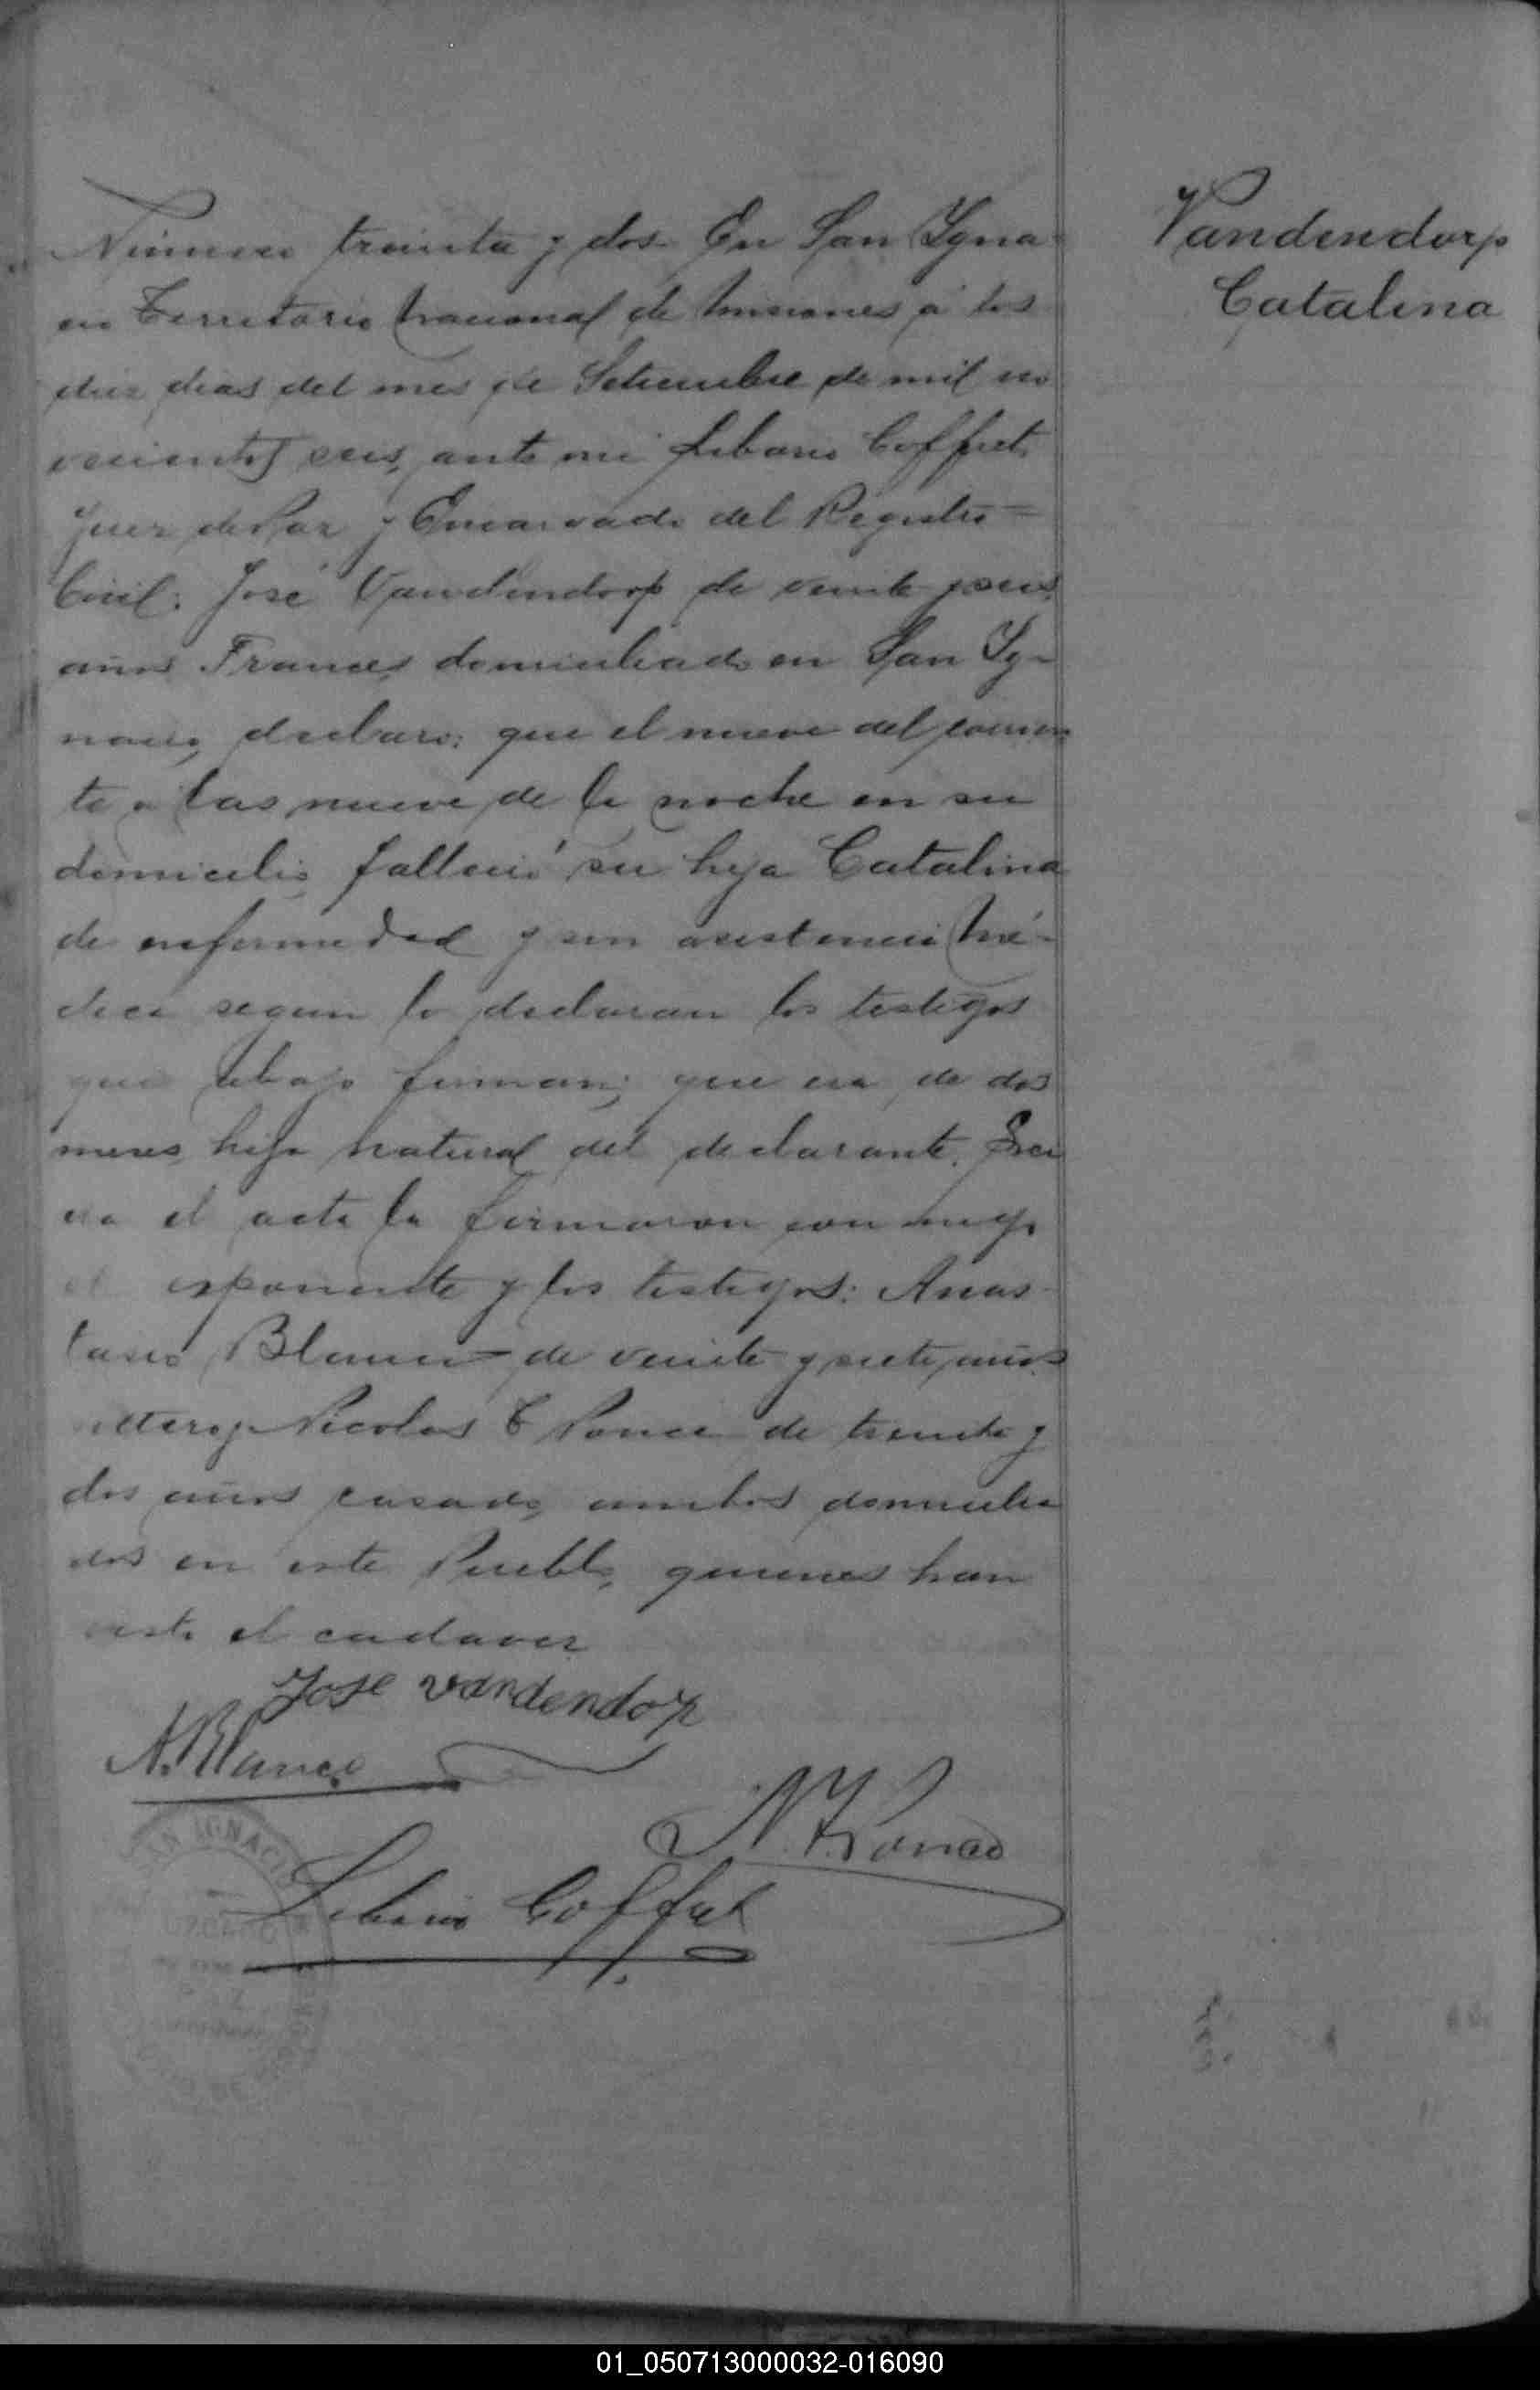 Vandendorp
Catalina
Número treinta y dos. En San Ygna-
cio Territorio Nacional de Misiones á los
diez dias del mes de Setiembre de mil no
vecientos seis, ante mi Liborio Coffret
Juez de Paz y Encargado del Registro =
Civil: José Vandendorp de veinte y seis
años Frances, domiciliado en San Yg-
nacio, declaro: que el nueve del corrien
te a las nueve de la noche en su
domicilio falleció su hija Catalina
de enfermedad y sin asistencia Mé-
dica segun lo declaran los testigos
que abajo firman; que era de dos
meses, hija natural del declarante. Lei
da el acta la firmaron con migo
el esponente y los testigos: Anas-
tasio Blanco de veinte y siete años
soltero y Nicolas T Ponce de treinta y
dos años casado, ambos domicilia
dos en este Pueblo, quienes han
visto el cadaver
Jose vandendorp
A. Blanco
N. T. Ponce
Liborio Coffret
SAN IGNACIO
01_050713000032-016090